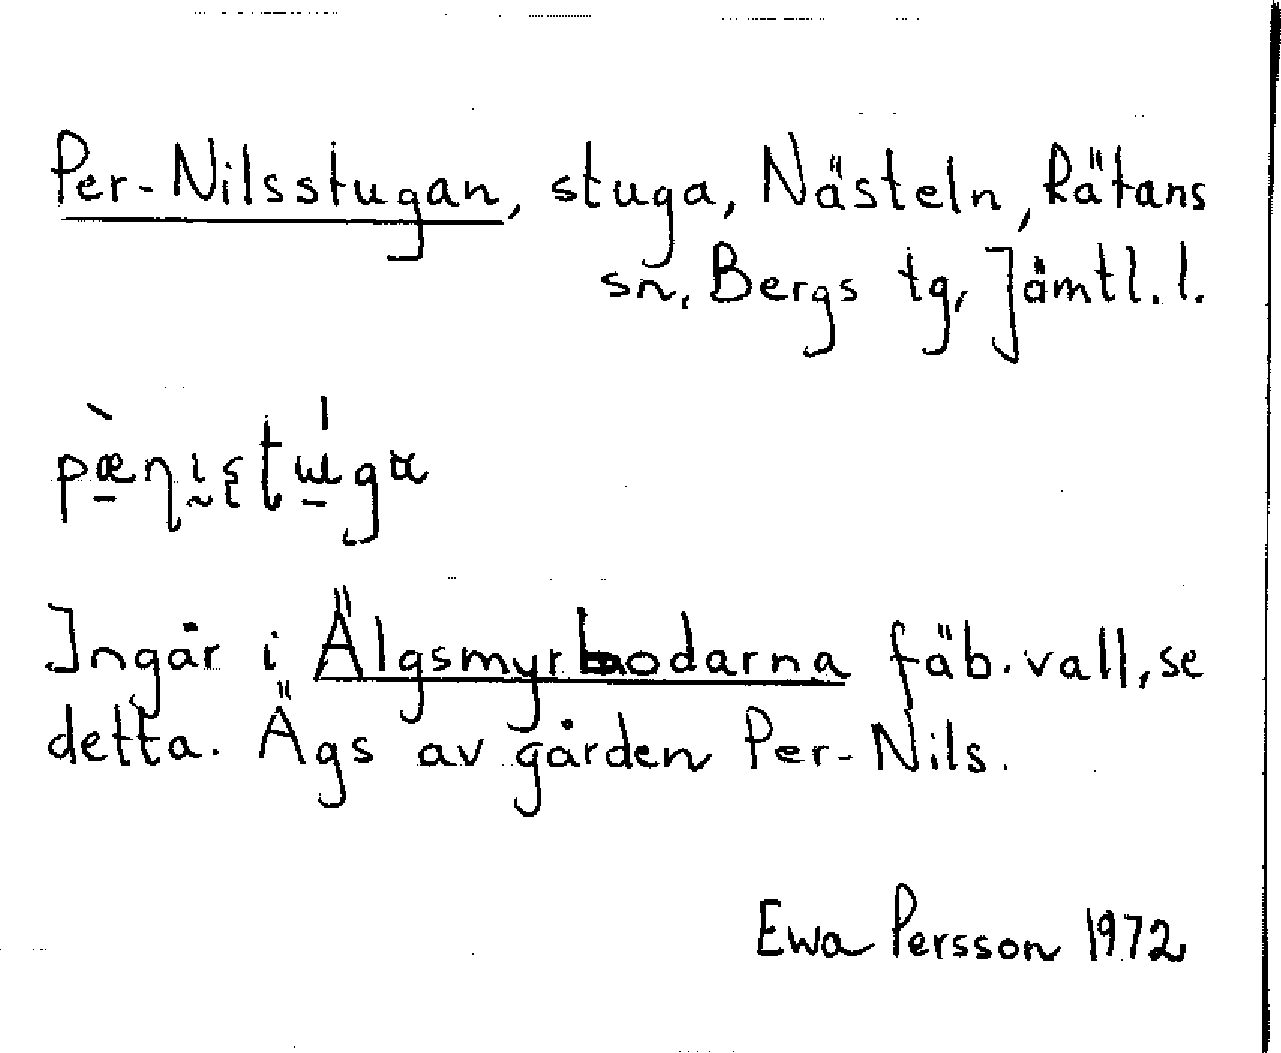 Per-Nilsstugan, stuga, Nästeln, Rätans
sn, Bergs tg, Jämtl. l.
Ingår i Älgsmyrbodarna fäb.vall, se
detta. Ägs av gården Per-Nils.
Ewa Persson 1972